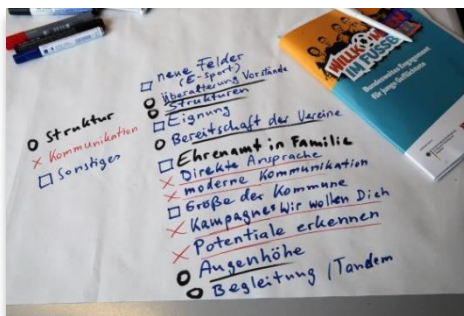 O Struktur
X Kommunikation
□ Sonstiges
□ neue Felder
(E-Sport)
O Überalterung Vorstände
O Strukturen
□ Eignung
O Bereitschaft der Vereine
□ Ehrenamt in Familie
X Direkte Ansprache
X moderne Kommunikation
□ Größe der Kommune
X Kampagne: Wir wollen Dich
X Potentiale erkennen
O Augenhöhe
O Begleitung / Tandem
WILLKOMMEN
IM FUSSB
Bundesweites Engagement
für junge Geflüchtete